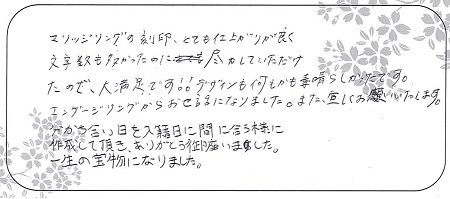 マリッジリングの刻印、とても仕上がりが良く
文字数も多かったのに尽力していただけ
たので、大満足です!!デザインも何もかも素晴らしかったです。
エンゲージリングからお世話になりました。また、宜しくお願いいたします。
付き合い日を入籍日に間に合う様に
作成して頂き、ありがとう御座いました。
一生の宝物になりました。